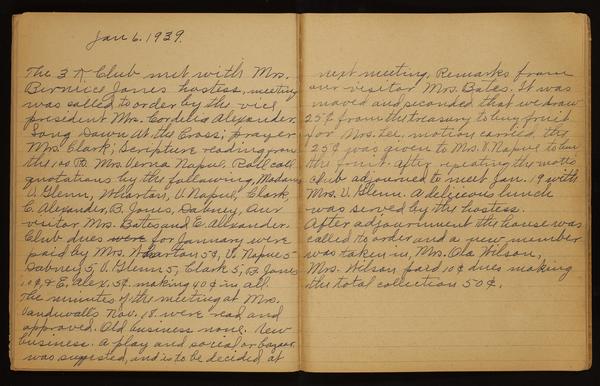 Jan 6. 1939.
The 3 A Club met with Mrs.
Bernice Jones hostess, meeting
was called to order by the vice
president Mrs. Cordelia Alexander,
Song Down At the Cross; prayer
Mrs. Clark; Scripture reading from
the Ps. Mrs. Verna Napue, Roll call
quotations by the following, Madams
V. Glenn, Wharton, V. Napue, Clark,
C. Alexander, B. Jones, Dabney, our
visitor Mrs. Bates and E. Allexander.
Club dues were for January were
paid by Mrs. Wharton 5¢, V. Napue 5
Dabney 5, V. Glenn 5, Clark 5, B. Jones
10¢, & E. Alex. 5¢. making 40¢ in all.
The minutes of the meeting at Mrs.
Vanduvalls Nov. 18 were read and
approved. Old business none. New
business. A play and social or bazaar
was suggested, and is to be decided at
next meeting, Remarks from
our visitor Mrs. Bates. It was
moved and seconded that we draw
25¢ from the treasury to buy fruit
for Mrs. Lee, motion carried, the
25¢ was given to Mrs. V. Napue to buy
the fruit. After repeating the motto
club adjourned to meet Jan. 19 with
Mrs. V. Glenn. A delicious lunch
was served by the hostess.
After adjournment the house was
called to order and a new member
was taken in, Mrs. Ola Wilson,
Mrs. Wilson paid 10¢ dues making
the total collection 50¢.